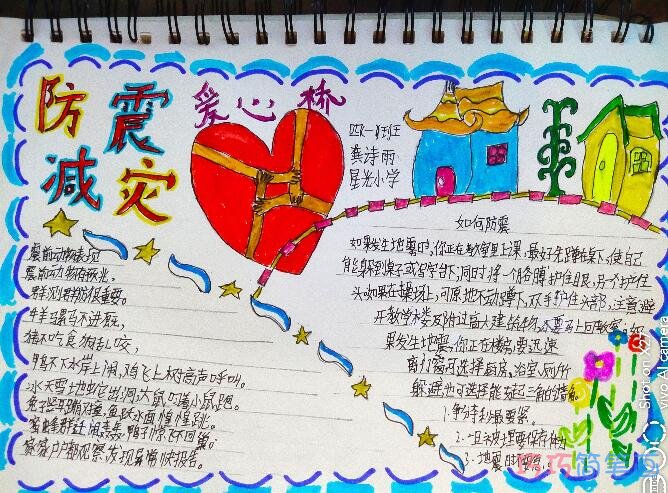 防震
减灾
爱心桥
四(一)班
龚诗雨
星光小学
震前动物表现
震前动物有预兆。
群测群防很重要。
牛羊骡马不进厩，
猪不吃食狗乱咬，
鸭不下水岸上闹，鸡飞上树高声呼叫。
冰天雪地蛇出洞大鼠叼着小鼠跑。
兔子竖耳蹦又撞，鱼跃水面惶惶跳。
蜜蜂群迁闹轰轰，鸽子惊飞不回巢。
家家户户都观察发现异常快报告。
如何防震
如果发生地震时，你正在教室里上课，最好先蹲在下，使自己
能躲到桌子或写字台下；同时将一个胳膊护住眼，另一个护住
头，如果在操场上，可原地不动蹲下，双手护住头部，注意避
开教学楼及附近高大建筑物，不要马上回教室；如
果发生地震，你正在楼房，要迅速
离门窗可选择厨房、浴室、厕所
躲避，也可选择能支起三角的
1.争分夺秒最要紧。
2.一旦被埋要保存体
3.地震时
Shot on X27
vivo AI camera